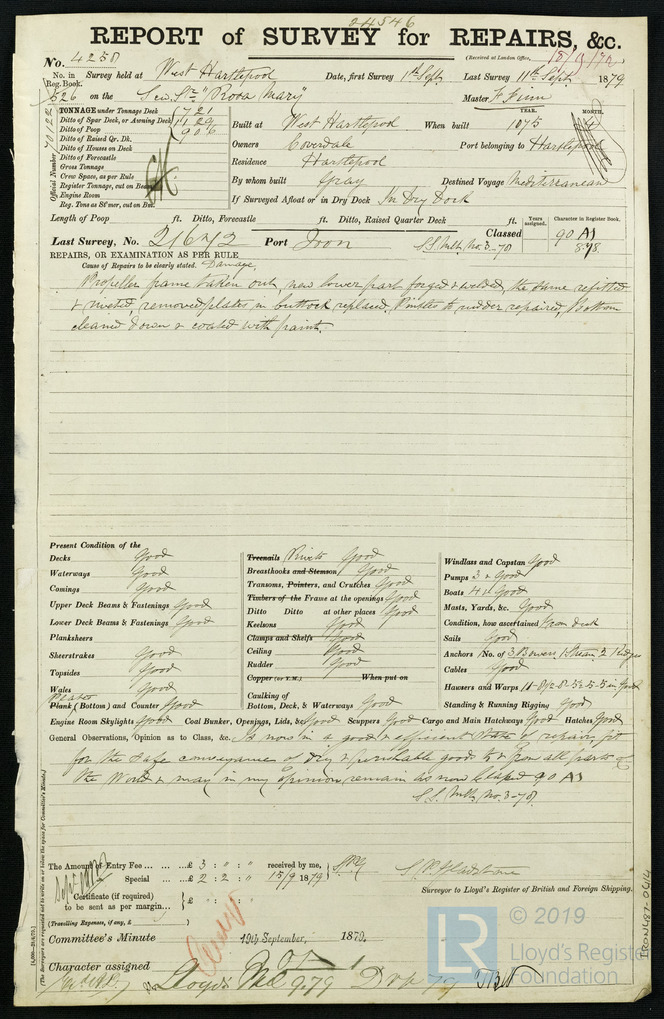 24546
REPORT of SURVEY for REPAIRS, &c.
No. 4258 (Received at London Office,
No. in Reg. Book. Survey held at West Hartlepool Date, first Survey 1st Sept. Last Survey 11th Sept. 1879
526 on the Sew. Sr. "Rosa Mary" Master F. Finn
TONNAGE under Tonnage Deck 1721
Ditto of Spar Deck, or Awning Deck 1129
Ditto of Poop 906
Ditto of Raised Qr. Dk.
Ditto of Houses on Deck
Ditto of Forecastle
Gross Tonnage
Crew Space, as per Rule
Register Tonnage, cut on Beam
Engine Room
Reg. Tons as St'mer, cut on Bm.
Official Number 70122
Built at West Hartlepool When built YEAR. 1875 MONTH. 4
Owners Coverdale Port belonging to Hartlepool
Residence Hartlepool
By whom built Gray Destined Voyage Mediterranean
If Surveyed Afloat or in Dry Dock In Dry Dock
Length of Poop ft. Ditto, Forecastle ft. Ditto, Raised Quarter Deck ft.
Years assigned. Character in Register Book.
Last Survey, No. 21672 Port Iron Classed 90 A1
S.S. Mdb. No. 3-78 8.78
REPAIRS, OR EXAMINATION AS PER RULE
Cause of Repairs to be clearly stated. Damage,
Propeller frame taken out, new lower part forged & welded, the same refitted
& riveted, removed plates in buttock replaced. Pintles to rudder repaired, Bottom
cleaned down & coated with paint.
Present Condition of the
Decks Good
Waterways Good
Comings Good
Upper Deck Beams & Fastenings Good
Lower Deck Beams & Fastenings Good
Planksheers
Sheerstrakes Good
Topsides Good
Wales Good
Plates
Plank (Bottom) and Counter Good
Treenails Rivets Good
Breasthooks and Stemson Good
Transoms, Pointers, and Crutches Good
Timbers of the Frame at the openings Good
Ditto Ditto at other places Good
Keelsons Good
Clamps and Shelfs Good
Ceiling Good
Rudder Good
Copper (or Y.M.) When put on
Caulking of
Bottom, Deck, & Waterways Good
Windlass and Capstan Good
Pumps 3 & Good
Boats 4 Good
Masts, Yards, &c. Good
Condition, how ascertained From deck
Sails Good
Anchors No. of 3 Bowers 1 Stream 2 Kedges
Cables Good
Hawsers and Warps Good
Standing & Running Rigging Good
Engine Room Skylights Good Coal Bunker, Openings, Lids, &c. Good Scuppers Good Cargo and Main Hatchways Good Hatches Good
General Observations, Opinion as to Class, &c. Is now in a good & efficient state of repair, fit
for the safe conveyance of dry & perishable goods to & from all parts of
the World & may in my opinion remain as now classed 90 A1
S.S. Mdb. No. 3-78
The Amount of Entry Fee ... ... £ 3 : " : " received by me,
" Special ... £ 2 : 2 : " 15/9 1879
Certificate (if required) to be sent as per margin... £ " : " : "
(Travelling Expenses, if any, £
Surveyor to Lloyd's Register of British and Foreign Shipping.
Committee's Minute 19th September, 1879.
Character assigned 90 A 1
Lloyds Md 9.79 D 9.79
(The Surveyors are requested not to write on or below the space for Committee's Minute.)
IRON487-0614
LR © 2019
Lloyd's Register
Foundation